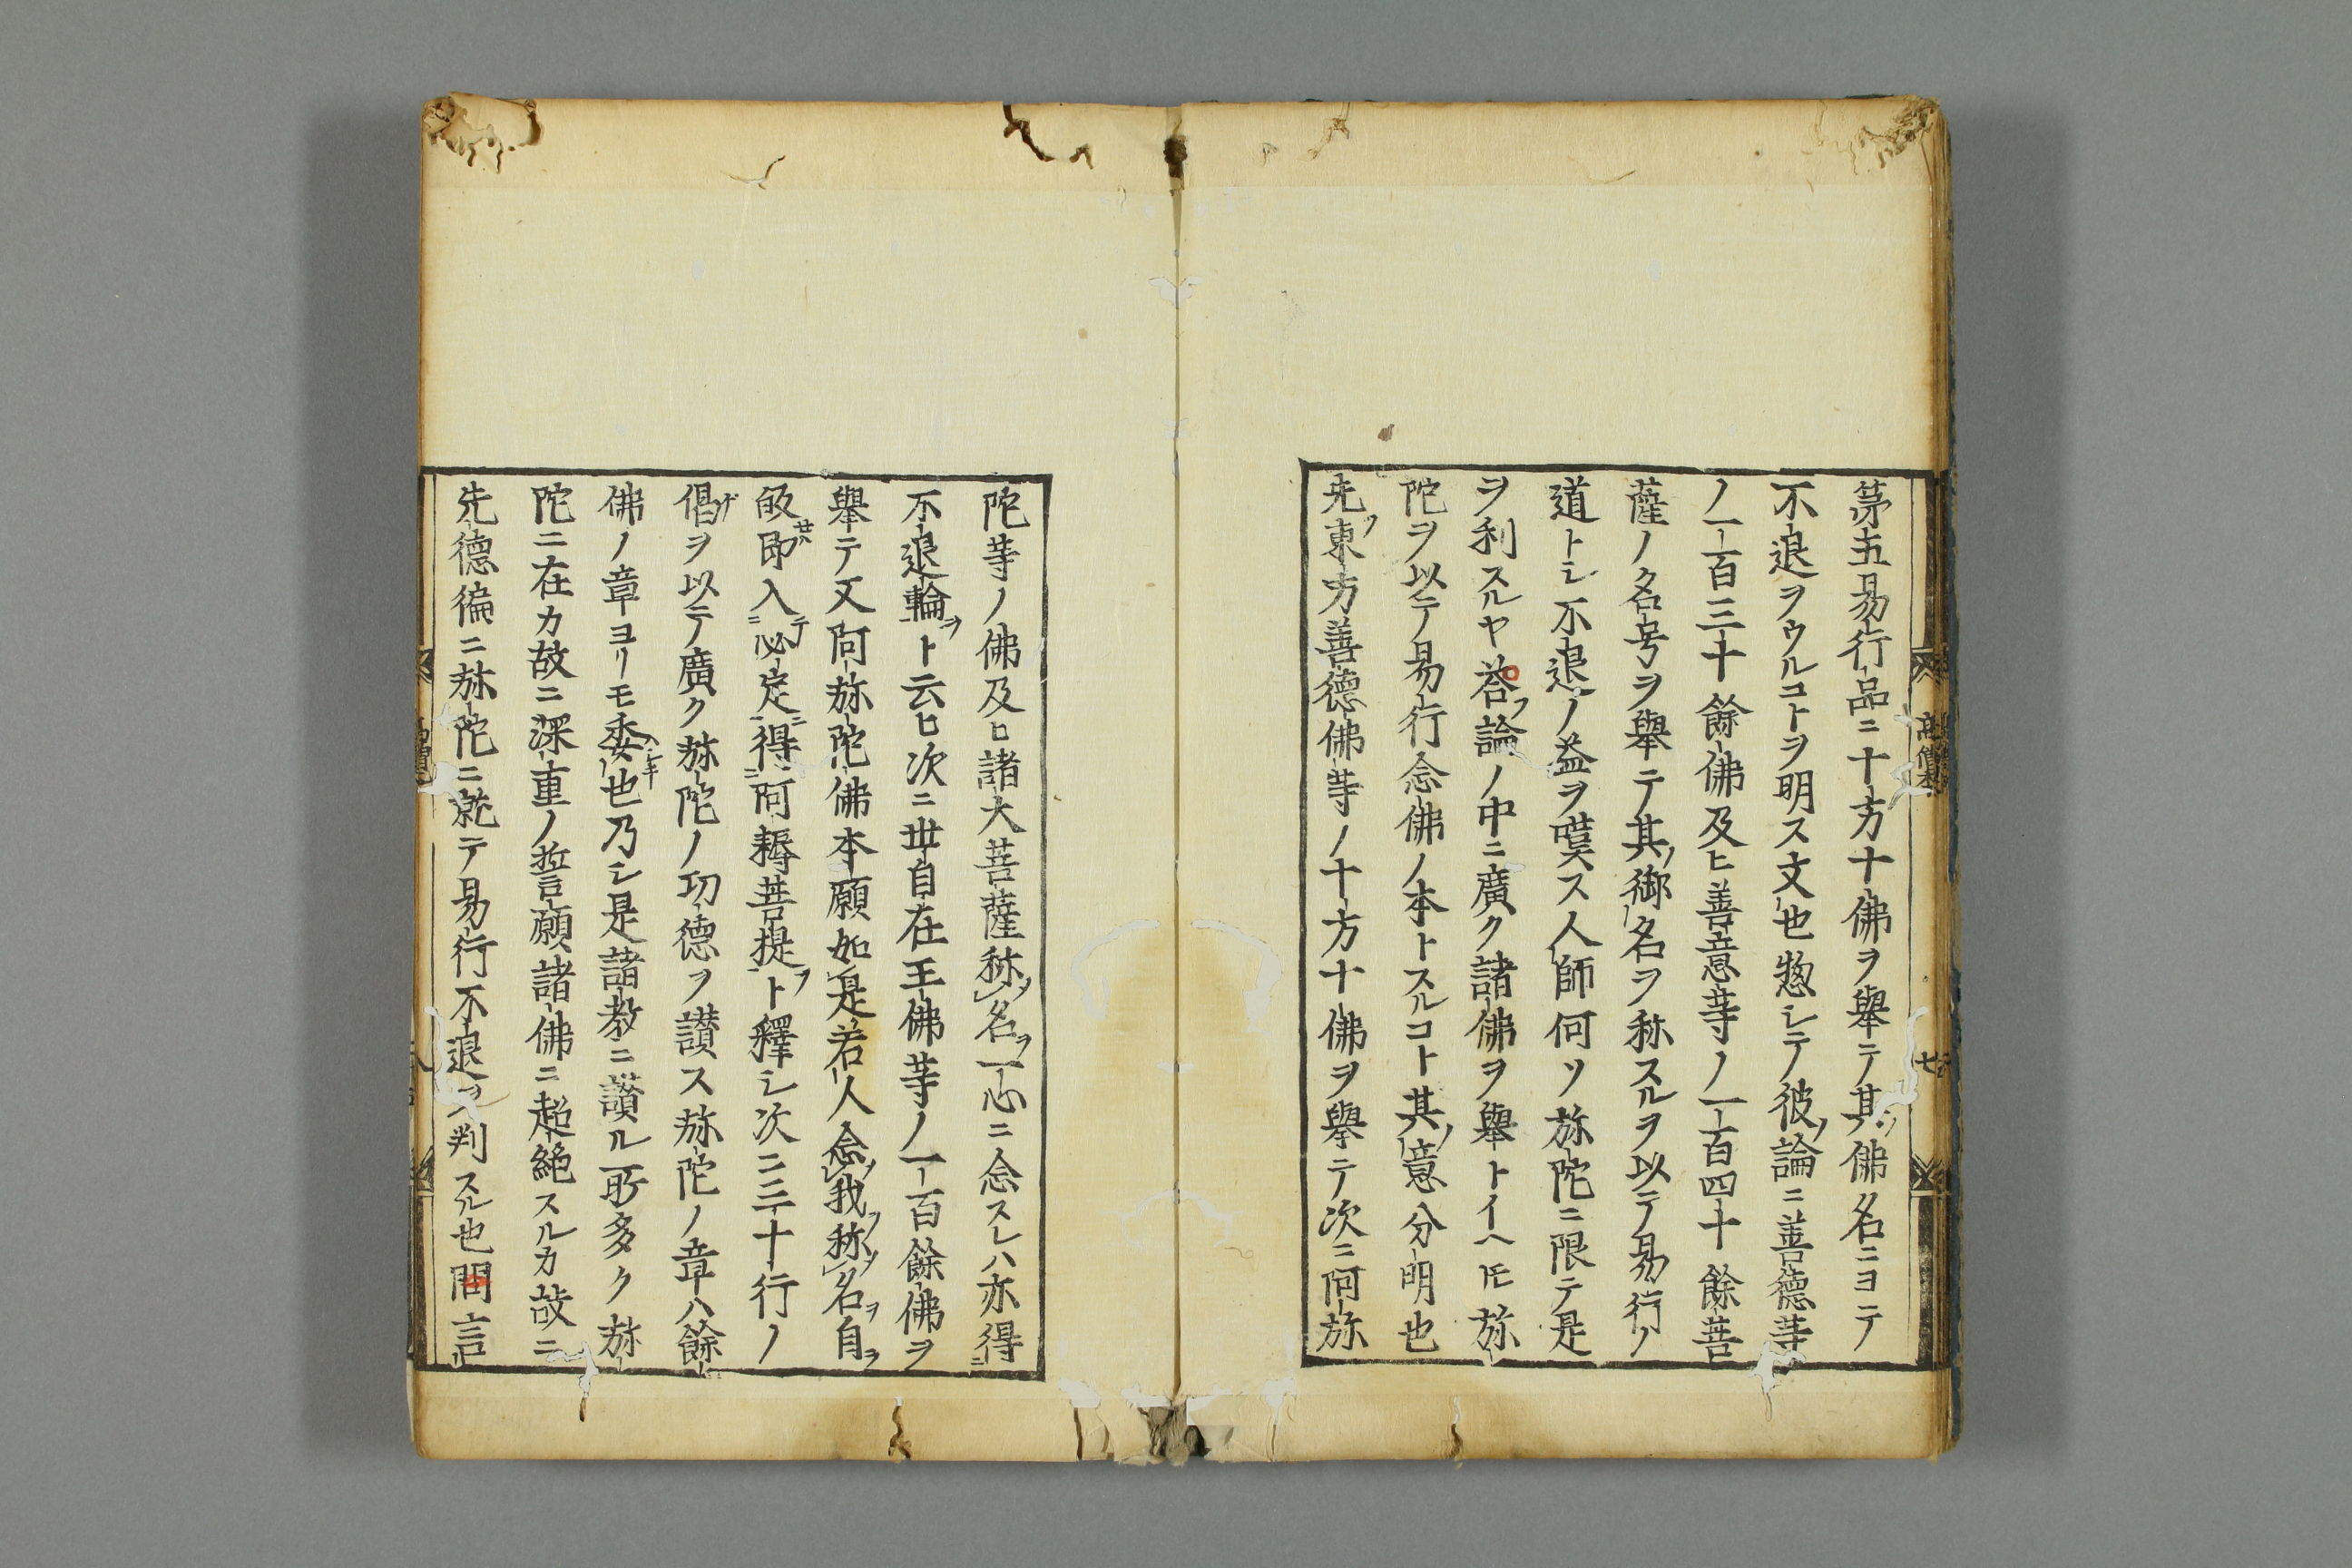 苐五易行品ニ十方十佛ヲ擧テ其佛名ニヨテ
不退ヲウルコトヲ明ス文也惣シテ彼論ニ善德䓁
ノ一百三十餘佛及ヒ善意䓁ノ一百四十餘菩
薩ノ名号ヲ擧テ其御名ヲ称スルヲ以テ易行ノ
道トシ不退ノ益ヲ嘆ス人師何ソ弥陀ニ限テ是
ヲ利スルヤ荅論ノ中ニ廣ク諸佛ヲ擧トイヘㇳモ弥
陀ヲ以テ易行念佛ノ本トスルコト其意分明也
先東方善德佛䓁ノ十方十佛ヲ擧テ次ニ阿弥
陀䓁ノ佛及ヒ諸大菩薩称名一心ニ念スレハ亦得
不退輪ト云ヒ次ニ丗自在王佛䓁ノ一百餘佛ヲ
擧テ又阿弥陀佛本願如是若人念我称名自
皈即入必定得阿耨菩提ト釋シ次ニ三十行ノ
偈ヲ以テ廣ク弥陀ノ功德ヲ讃ス弥陀ノ章ハ餘
佛ノ章ヨリモ委也乃シ是諸教ニ讃ル所多ク弥
陀ニ在カ故ニ深重ノ誓願諸佛ニ超絶スルカ故ニ
先德徧ニ弥陀ニ就テ易行不退ヲ判スル也問言